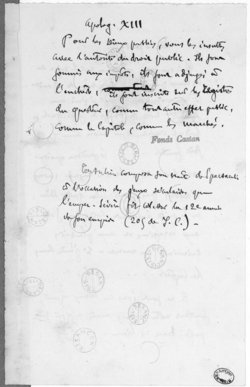 Apolog. XIII
Pour les Dieux publics, vous les insultez
avec l'autorité du droit public. Ils sont
soumis aux impôts, ils sont adjugés à
l'enchère, ils sont inscrits sur les registres
du questeur, comme tout autre effet public,
comme le Capitole, comme les marchés.
Fonds Castan
Tertullien composa son traité de Spectaculis
à l'occasion des jeux séculaires que
l'emper. Sévère fit célébrer la 12e année
de son empire (205 de J. C.) —